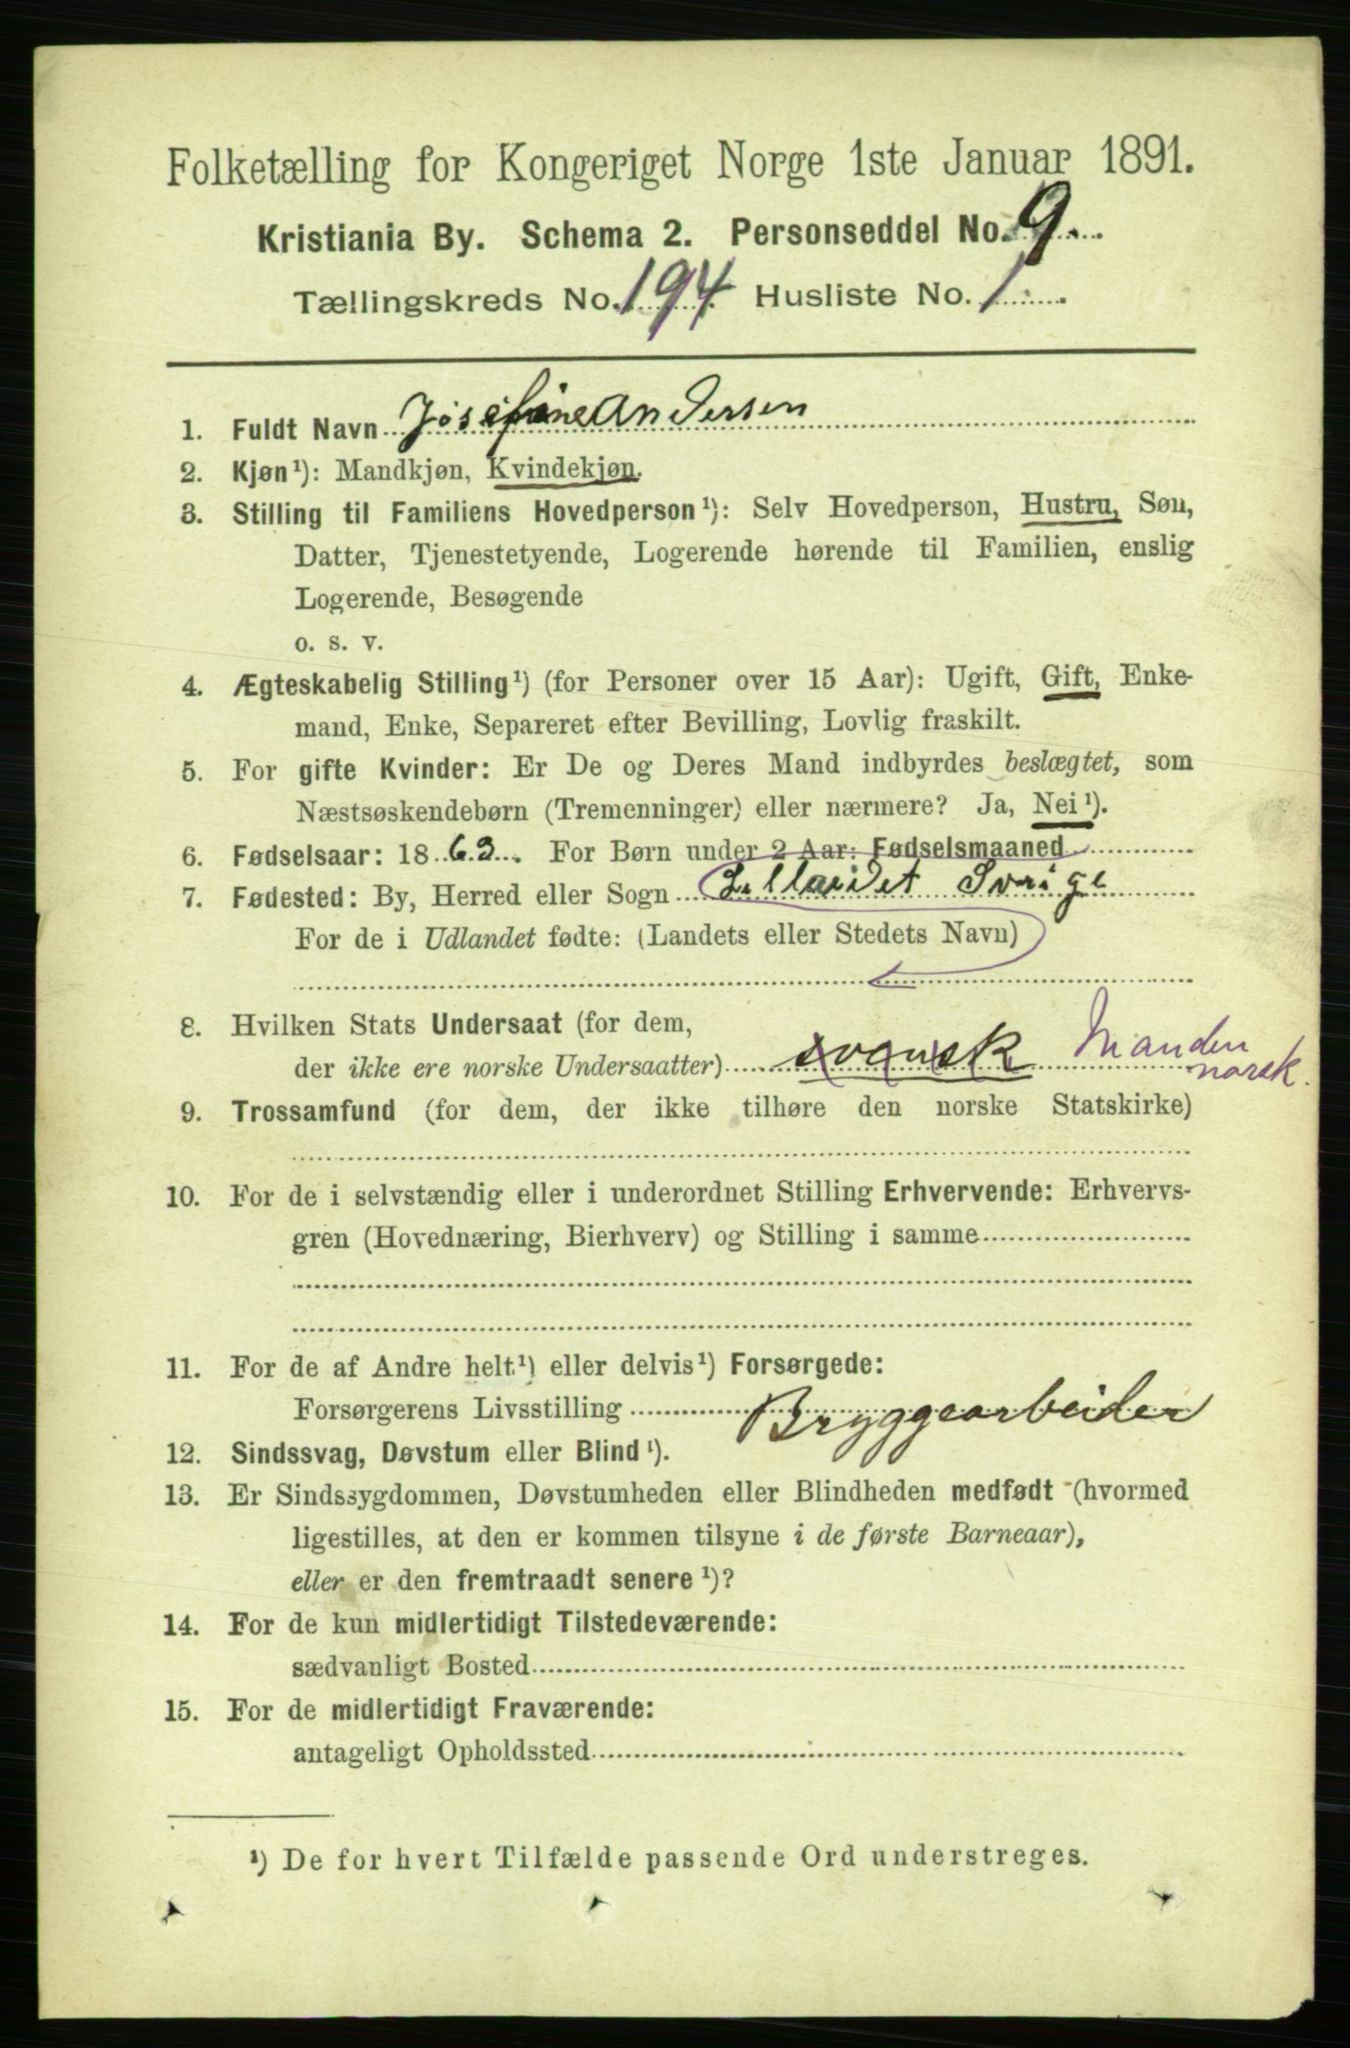 Folketælling for Kongeriget Norge 1ste Januar 1891.
Kristiania By. Schema 2. Personseddel No. 9.
Tællingskreds No. 194. Husliste No. 1.
1. Fuldt Navn Josefine Andersen
2. Kjøn ¹): Mandkjøn, Kvindekjøn.
3. Stilling til Familiens Hovedperson ¹): Selv Hovedperson, Hustru, Søn,
Datter, Tjenestetyende, Logerende hørende til Familien, enslig
Logerende, Besøgende
o. s. v.
4. Ægteskabelig Stilling ¹) (for Personer over 15 Aar): Ugift, Gift, Enke-
mand, Enke, Separeret efter Bevilling, Lovlig fraskilt.
5. For gifte Kvinder: Er De og Deres Mand indbyrdes beslægtet, som
Næstsøskendebørn (Tremenninger) eller nærmere? Ja, Nei ¹).
6. Fødselsaar: 1863. For Børn under 2 Aar: Fødselsmaaned
7. Fødested: By, Herred eller Sogn Sverige
For de i Udlandet fødte: (Landets eller Stedets Navn)
8. Hvilken Stats Undersaat (for dem,
der ikke ere norske Undersaatter) svensk Manden
norsk.
9. Trossamfund (for dem, der ikke tilhøre den norske Statskirke)
10. For de i selvstændig eller i underordnet Stilling Erhvervende: Erhvervs-
gren (Hovednæring, Bierhverv) og Stilling i samme
11. For de af Andre helt ¹) eller delvis ¹) Forsørgede:
Forsørgerens Livsstilling Bryggearbeider
12. Sindssvag, Døvstum eller Blind ¹).
13. Er Sindssygdommen, Døvstumheden eller Blindheden medfødt (hvormed
ligestilles, at den er kommen tilsyne i de første Barneaar),
eller er den fremtraadt senere ¹)?
14. For de kun midlertidigt Tilstedeværende:
sædvanligt Bosted
15. For de midlertidigt Fraværende:
antageligt Opholdssted
¹) De for hvert Tilfælde passende Ord understreges.